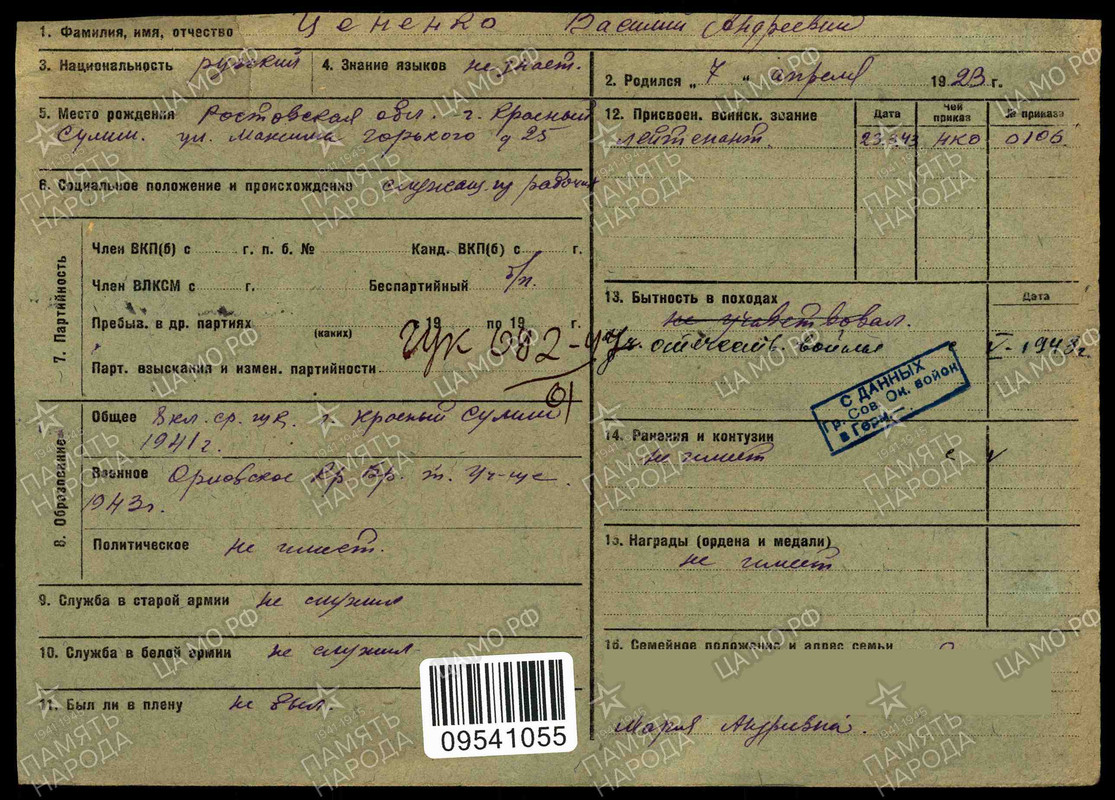 1. Фамилия, имя, отчество Цененко Василий Андреевич
3. Национальность русский
4. Знание языков не знает.
2. Родился „ 7 “ апреля 1923 г.
5. Место рождения Ростовская обл. г. Красный
Сулин. ул. Максима Горького д 25
6. Социальное положение и происхождение служащ. из рабочих
7. Партийность
Член ВКП(б) с г. п. б. № Канд. ВКП(б) с г.
Член ВЛКСМ с г. Беспартийный б/п.
Пребыз. в др. партиях (каких) с 19 по 19 г.
ГУК 082-44
01
Парт. взыскания и измен. партийности
8. Образование
Общее 8 кл. ср. шк. г. Красный Сулин
1941 г.
Военное Орловское Уч-ще.
1943г.
Политическое не имеет.
9. Служба в старой армии не служил
10. Служба в белой армии не служил
11. Был ли в плену не был.
12. Присвоен. воинск. звание Дата Чей приказ № приказа
лейтенант. 43 НКО 0106
13. Бытность в походах Дата
не участвовал.
отечеств. войны с V-1943г
С ДАННЫХ
Гр. Сов. Ок. войск
в Герм.
14. Ранения и контузии
не имеет
15. Награды (ордена и медали)
не имеет
16. Семейное положение и адрес семьи
Мария Андреевна.
09541055
ЦА МО.РФ
1941-1945
ПАМЯТЬ
НАРОДА